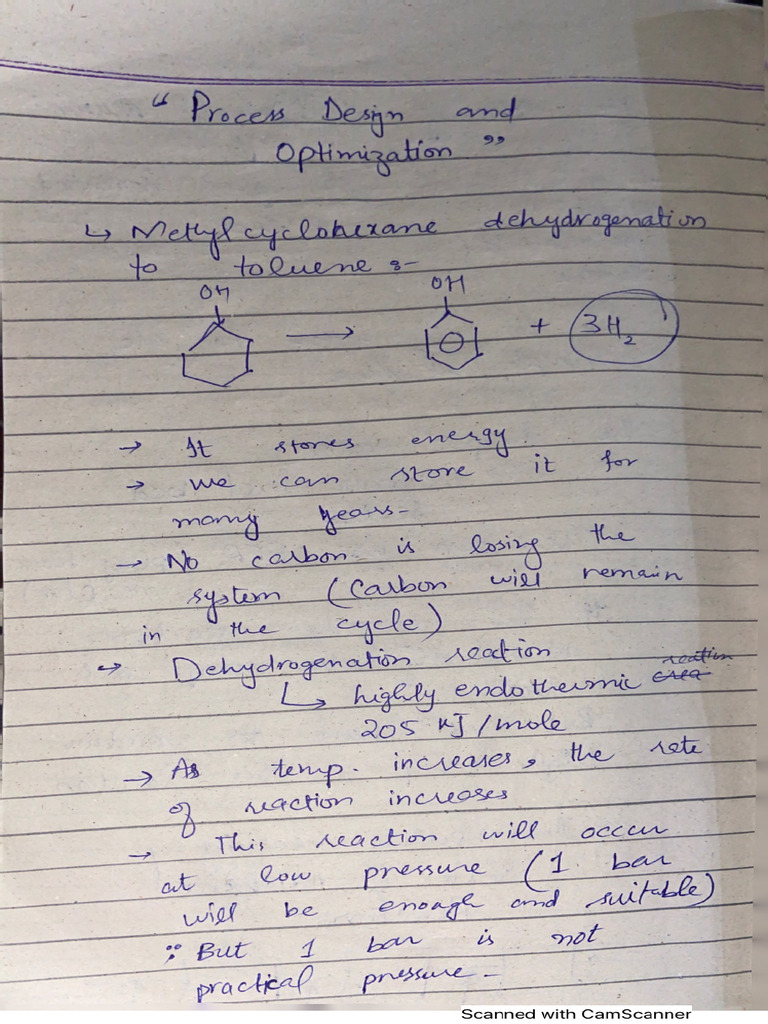 " Process Design and
Optimization "
↳ Methylcyclohexane dehydrogenation
to toluene :-
OH OH
→ + 3H₂
→ It stores energy
→ we can store it for
many years-
→ No carbon is losing the
system (Carbon will remain
in the cycle)
→ Dehydrogenation reaction
↳ highly endothermic reaction
205 kJ/mole
→ As temp. increases, the rate
of reaction increases
→ This reaction will occur
at low pressure (1 bar
will be enough and suitable)
∵ But 1 bar is not
practical pressure-
Scanned with CamScanner